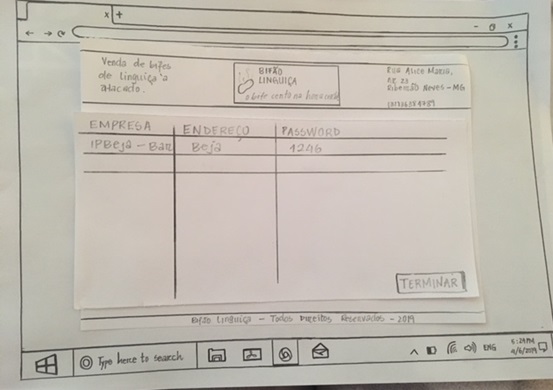 Venda de bifes
de linguiça a
atacado.
BIFÃO
LINGUIÇA
o bife certo na hora certa
Rua Alice Maria,
nº 23
Ribeirão Neves - MG
EMPRESA ENDEREÇO PASSWORD
IPBeja - Bar Beja 1246
TERMINAR
Bifão Linguiça - Todos Direitos Reservados - 2019
Type here to search
ENG
5:24PM
4/6/2019